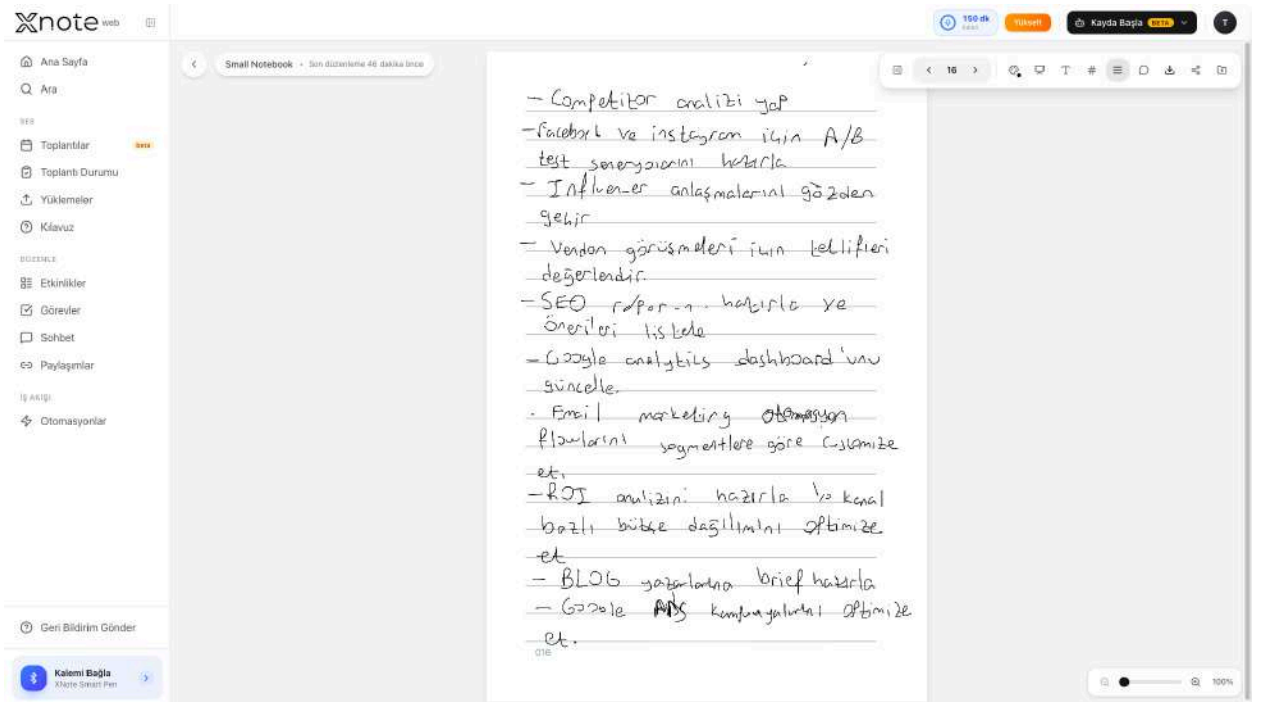 Xnote web
150 dk
Yükselt
Kayda Başla BETA
T
Ana Sayfa
Ara
SES
Toplantılar beta
Toplantı Durumu
Yüklemeler
Kılavuz
DÜZENLE
Etkinlikler
Görevler
Sohbet
Paylaşımlar
İŞ AKIŞI
Otomasyonlar
Geri Bildirim Gönder
Kalemi Bağla
XNote Smart Pen
Small Notebook • Son düzenleme 46 dakika önce
16
- Competitor analizi yap
- Facebook ve instagram için A/B
test senaryolarını hazırla
- Influencer anlaşmalarını gözden
geçir
- Vendor görüşmeleri için teklifleri
değerlendir.
- SEO raporunu hazırla ve
önerileri listele
- Google analytics dashboard'unu
güncelle.
. Email marketing otomasyon
flowlarını segmentlere göre customize
et.
- ROI analizini hazırla kanal
bazlı bütçe dağılımını optimize
et
- BLOG yazarlarına brief hazırla
- Google ADS kampanyalarını optimize
et.
016
100%